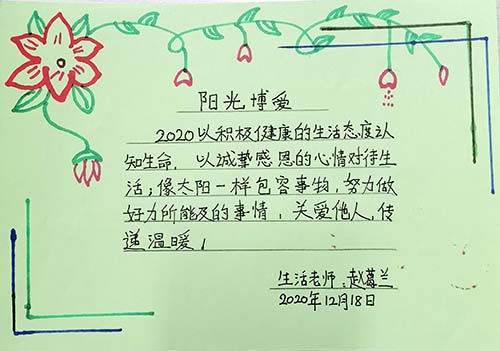 阳光博爱
2020以积极健康的生活态度认
知生命，以诚挚感恩的心情对待生
活；像太阳一样包容事物，努力做
好力所能及的事情，关爱他人，传
递温暖！
生活老师：赵葛兰
2020年12月18日